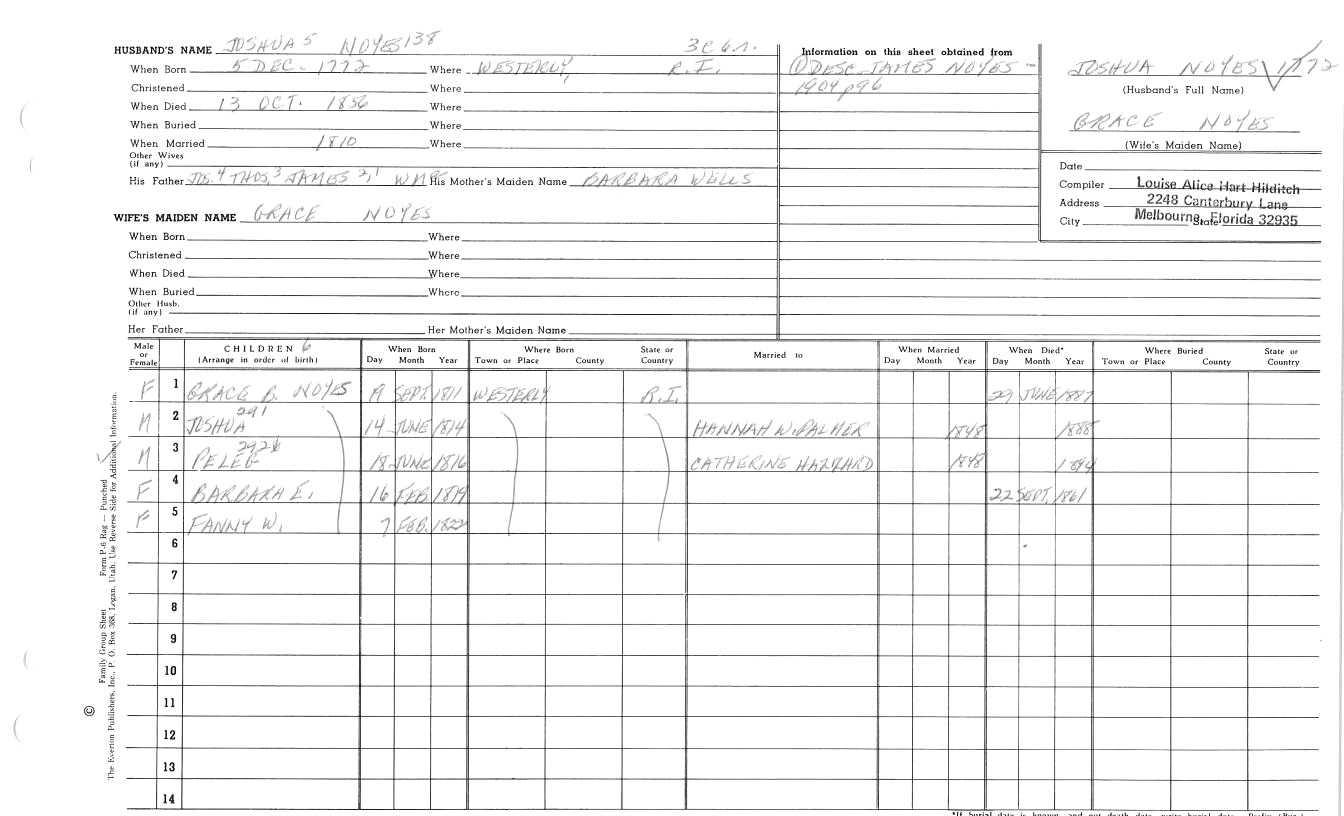 HUSBAND'S NAME JOSHUA 5 NOYES 138 3C6.1.
When Born 5 DEC. 1772 Where WESTERLY, R.I.
Christened Where
When Died 13 OCT. 1856 Where
When Buried Where
When Married 1810 Where
Other Wives
(if any)
His Father JOS.4 THOS,3 JAMES 2,1 WM His Mother's Maiden Name BARBARA WELLS
WIFE'S MAIDEN NAME GRACE NOYES
When Born Where
Christened Where
When Died Where
When Buried Where
Other Husb.
(if any)
Her Father Her Mother's Maiden Name
Information on this sheet obtained from
① DESC. JAMES NOYES -
1904 p96
JOSHUA NOYES 1772
(Husband's Full Name)
GRACE NOYES
(Wife's Maiden Name)
Date
Compiler Louise Alice Hart Hilditch
Address 2248 Canterbury Lane
City Melbourne, State Florida 32935
Male or Female CHILDREN 6 (Arrange in order of birth) When Born Day Month Year Where Born Town or Place County State or Country Married to When Married Day Month Year When Died* Day Month Year Where Buried Town or Place County State or Country
F 1 GRACE B. NOYES 19 SEPT. 1811 WESTERLY R.I. 29 JUNE 1887
M 2 JOSHUA 291 14 JUNE 1814 HANNAH W. PALMER 1848 1888
M 3 PELEG 292 18 JUNE 1816 CATHERINE HAZZARD 1848 1894
F 4 BARBARA E. 16 FEB. 1819 22 SEPT. 1861
F 5 FANNY W. 7 FEB. 1822
6
7
8
9
10
11
12
13
14
© Family Group Sheet Form P-6 Rag — Punched
The Everton Publishers, Inc., P. O. Box 368, Logan, Utah. Use Reverse Side for Additional Information.